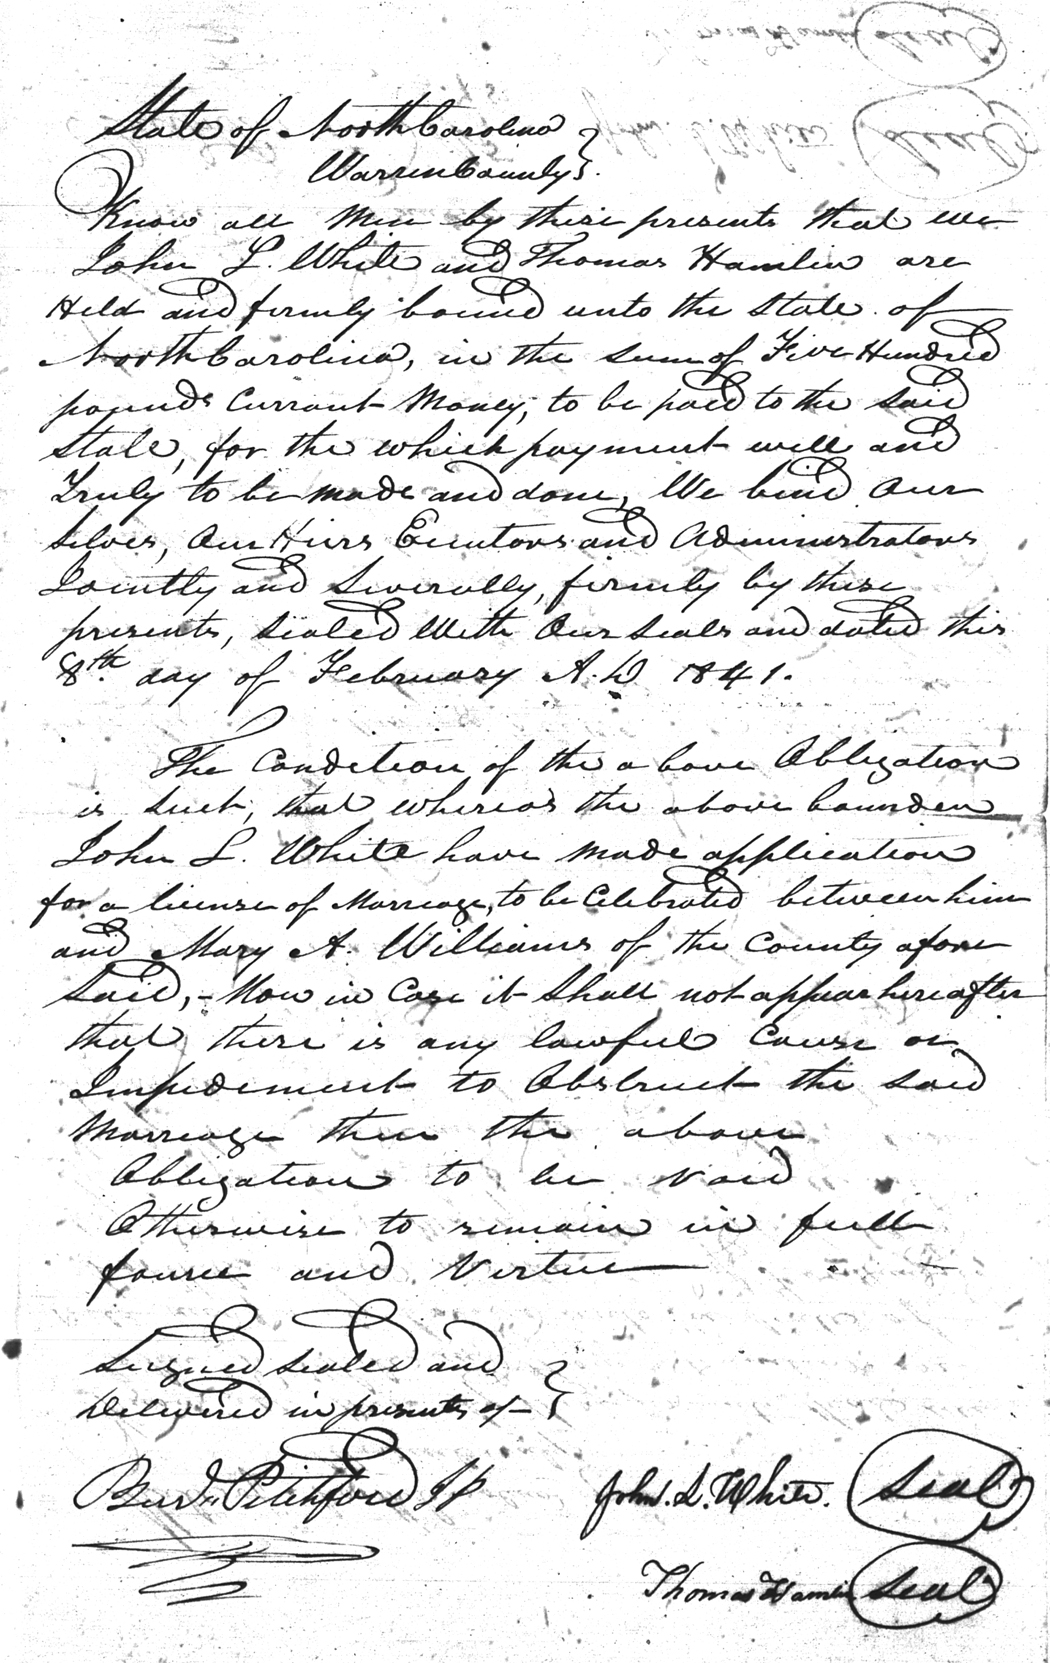 State of North Carolina
Warren County
Know all Men by these presents that we
John L. White and Thomas Hamlin are
Held and firmly bound unto the State of
North Carolina, in the sum of Five Hundred
pounds Currant Money, to be paid to the said
State, for the which payment well and
Truly to be made and done, We bind Our
selves, Our Heirs Executors and Administrators
Jointly and Severally, firmly by these
presents, sealed With Our seals and dated this
8th. day of February A.D 1841.
The Condition of the above Obligation
is such, that whereas the above bounden
John L. White have made application
for a license of Marriage, to be Celebrated between him
and Mary A. Williams of the County afore
said, - Now in Case it shall not appear hereafter
that there is any lawful Cause or
Impediment to Obstruct the said
Marriage then the above
Obligation to be Void
Otherwise to remain in full
fource and Virtue
Signed sealed and
Delivered in presents of
Pitchford JP John. L. White. Seal
Thomas Hamlin Seal